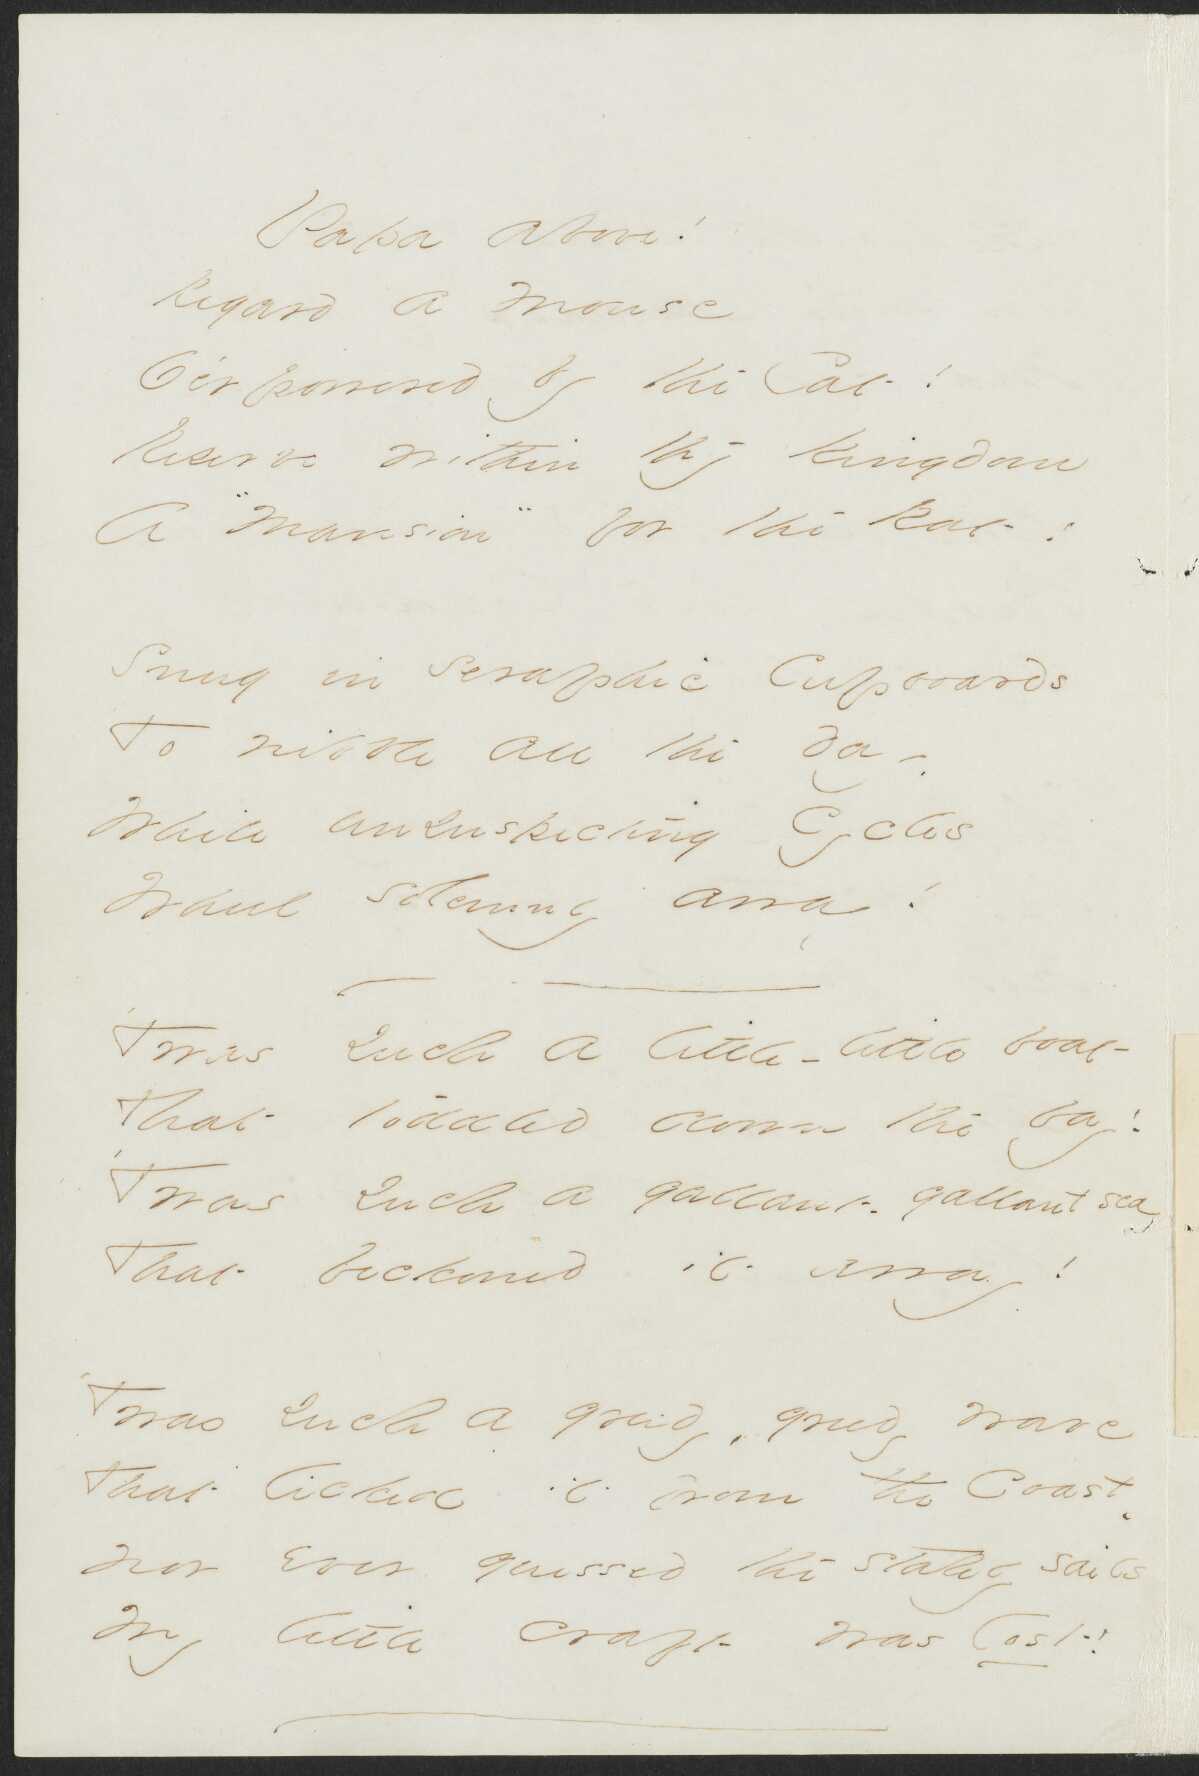 Papa above!
Regard a Mouse
O'erpowered by the Cat!
Reserve within thy kingdom
A "Mansion" for the Rat!
Snug in seraphic Cupboards
To nibble all the day,
While unsuspecting Cycles
Wheel solemnly away!
'Twas such a little - little boat
That toddled down the bay!
'Twas such a gallant - gallant sea
That beckoned it away!
'Twas such a greedy, greedy wave
That licked it from the Coast,
Nor ever guessed the stately sails
My little craft was lost!